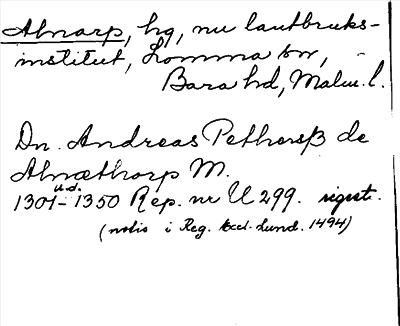 Alnarp, hg, nu lantbruks-
institut, Lomma sn,
Bara hd, Malm. l.
Dn. Andreas Pethersß de
Alnæthorp M.
u.d.
1301-1350 Rep. nr U 299.
(notis i Reg. Eccl. Lund. 1494)